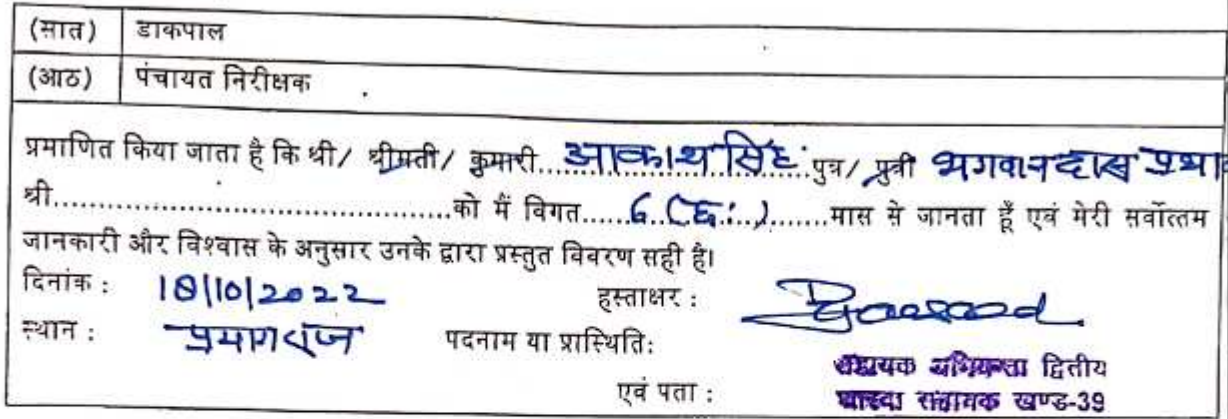 (सात) डाकपाल
(आठ) पंचायत निरीक्षक
प्रमाणित किया जाता है कि श्री/ श्रीमती/ कुमारी...आकाश सिंह...पुत्र/ पुत्री भगवानदास
श्री........................................को मैं विगत......6 (छ:)........मास से जानता हूँ एवं मेरी सर्वोत्तम
जानकारी और विश्वास के अनुसार उनके द्वारा प्रस्तुत विवरण सही है।
दिनांक : 18/10/2022 हस्ताक्षर :
स्थान : प्रयागराज पदनाम या प्रास्थिति:
सहायक अभियन्ता द्वितीय
एवं पता : शारदा सहायक खण्ड-39